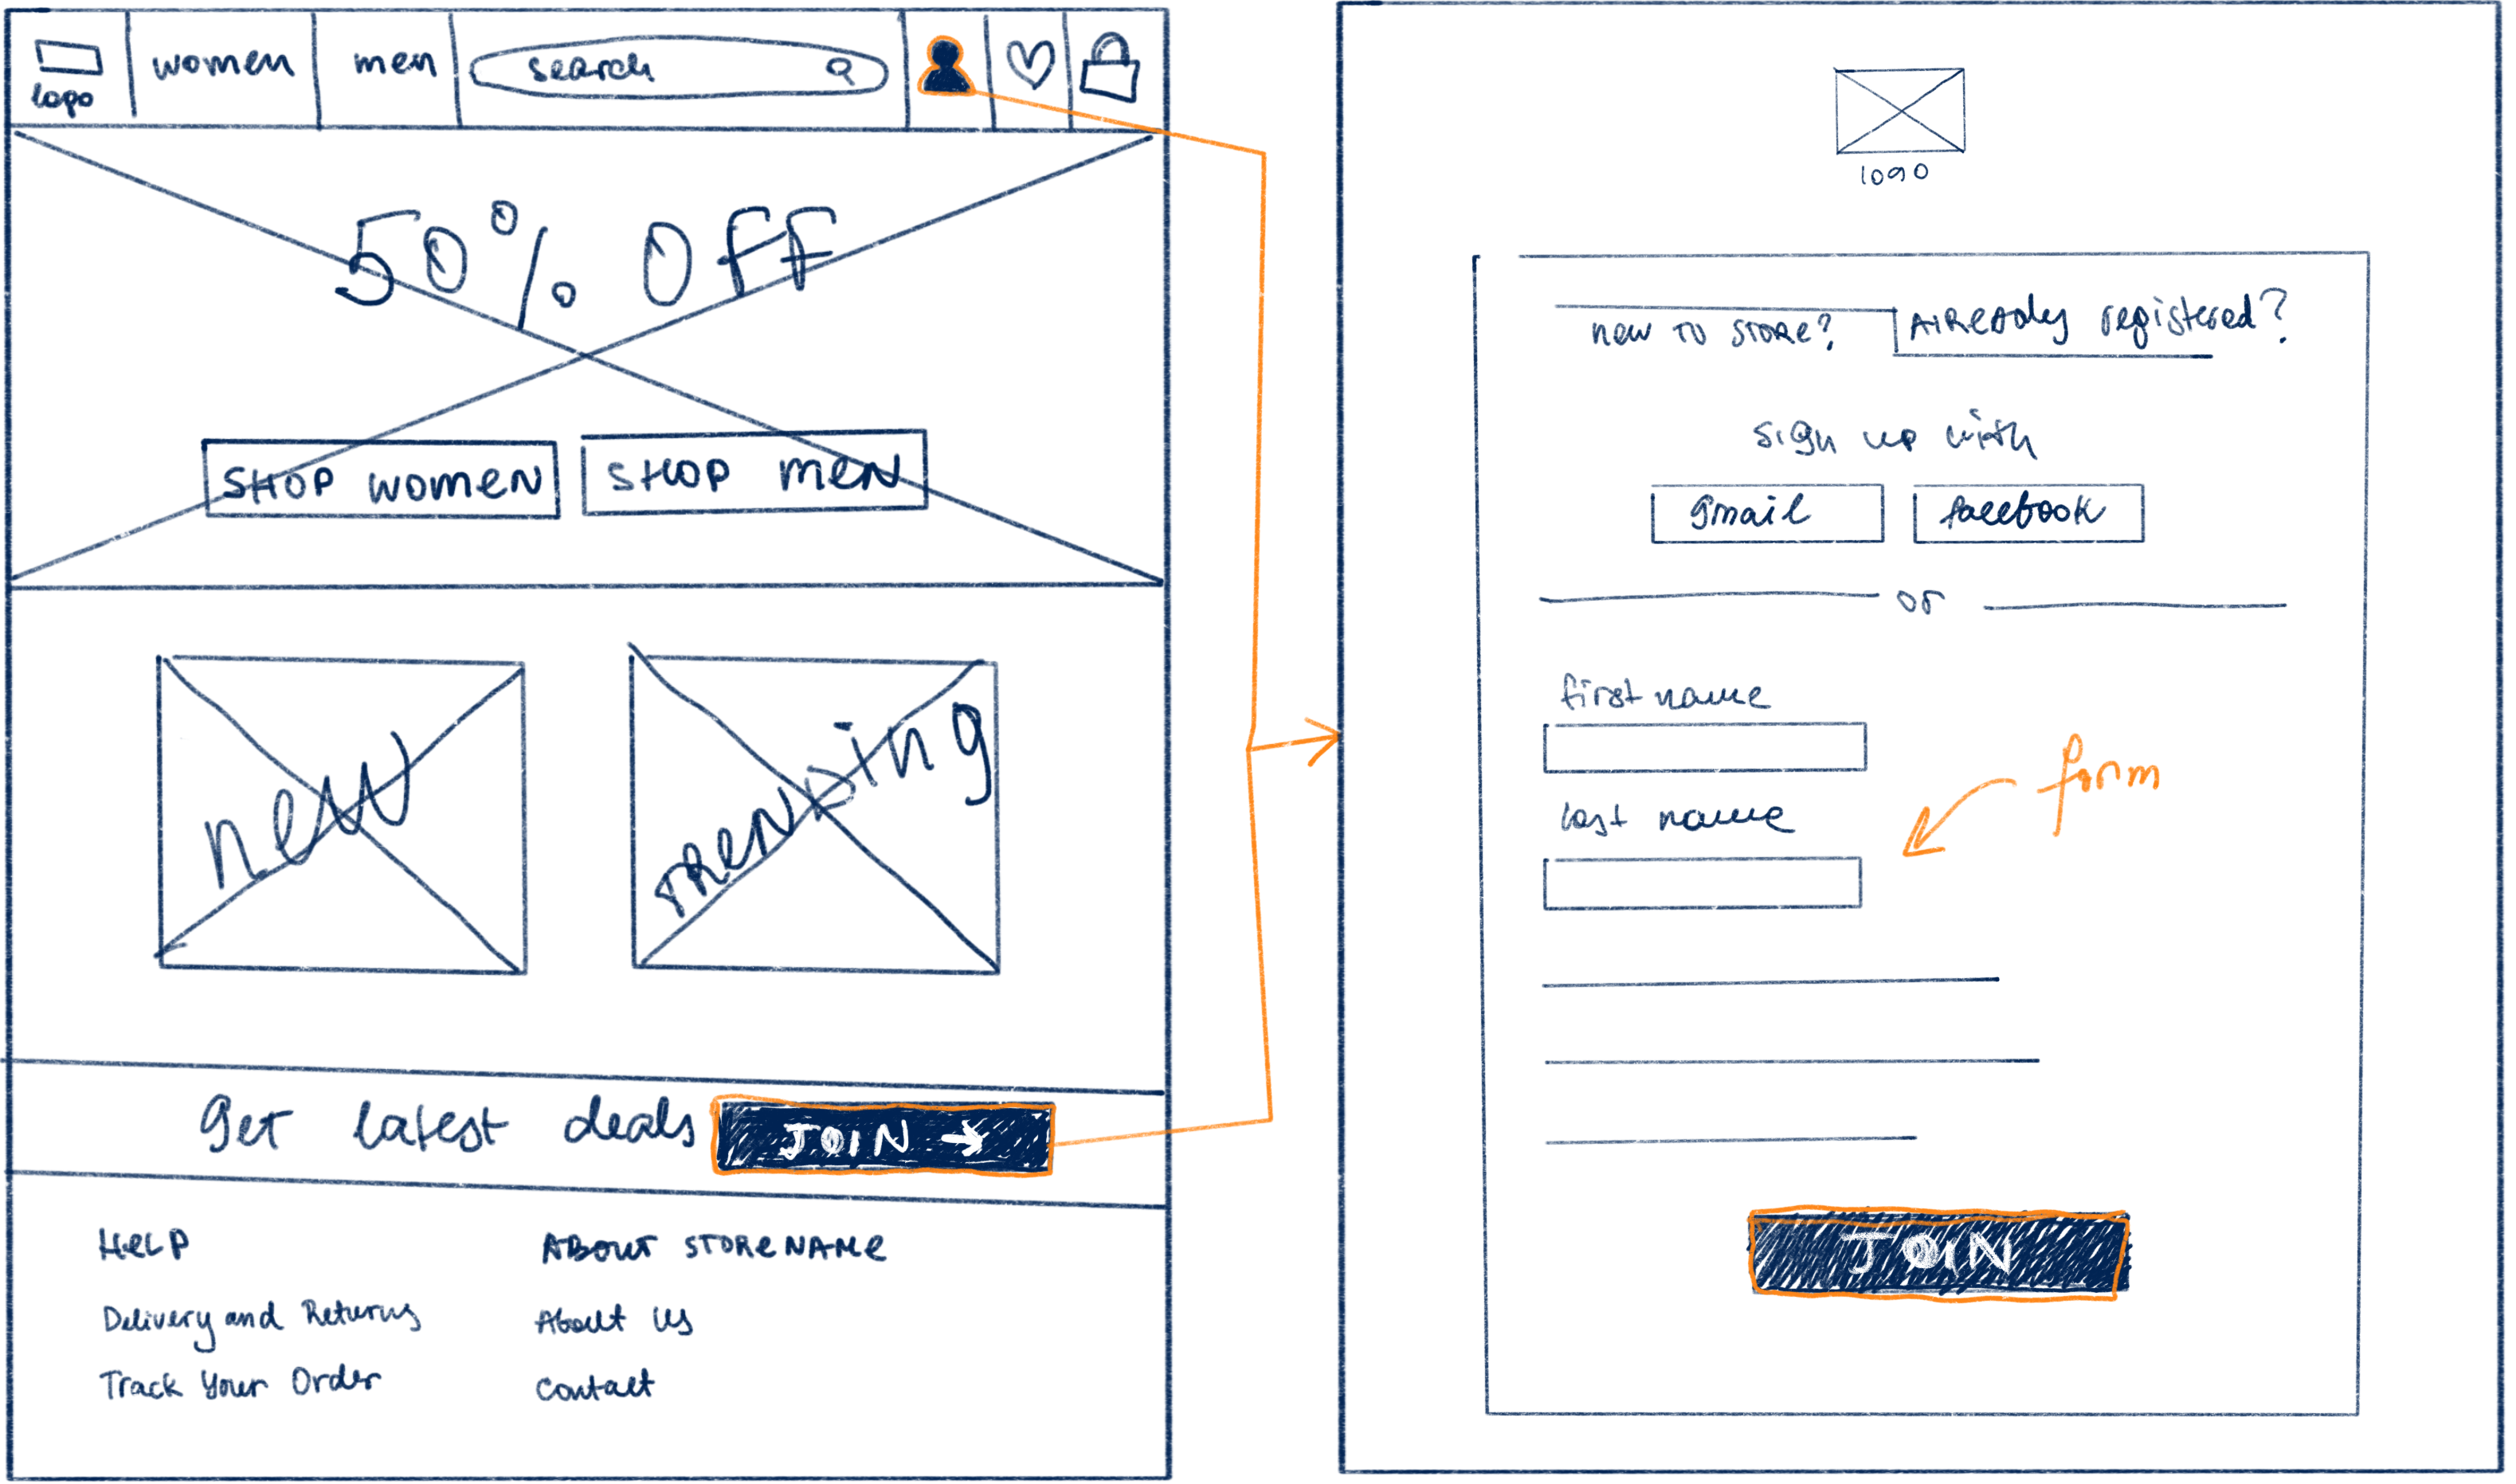 logo
women
men
search
50% Off
SHOP women
SHOP men
new
Trending
Get latest deals
JOIN →
HELP
Delivery and Returns
Track Your Order
ABOUT STORENAME
About Us
Contact
logo
new to store?
Already registered?
sign up with
gmail
facebook
or
first name
last name
form
JOIN